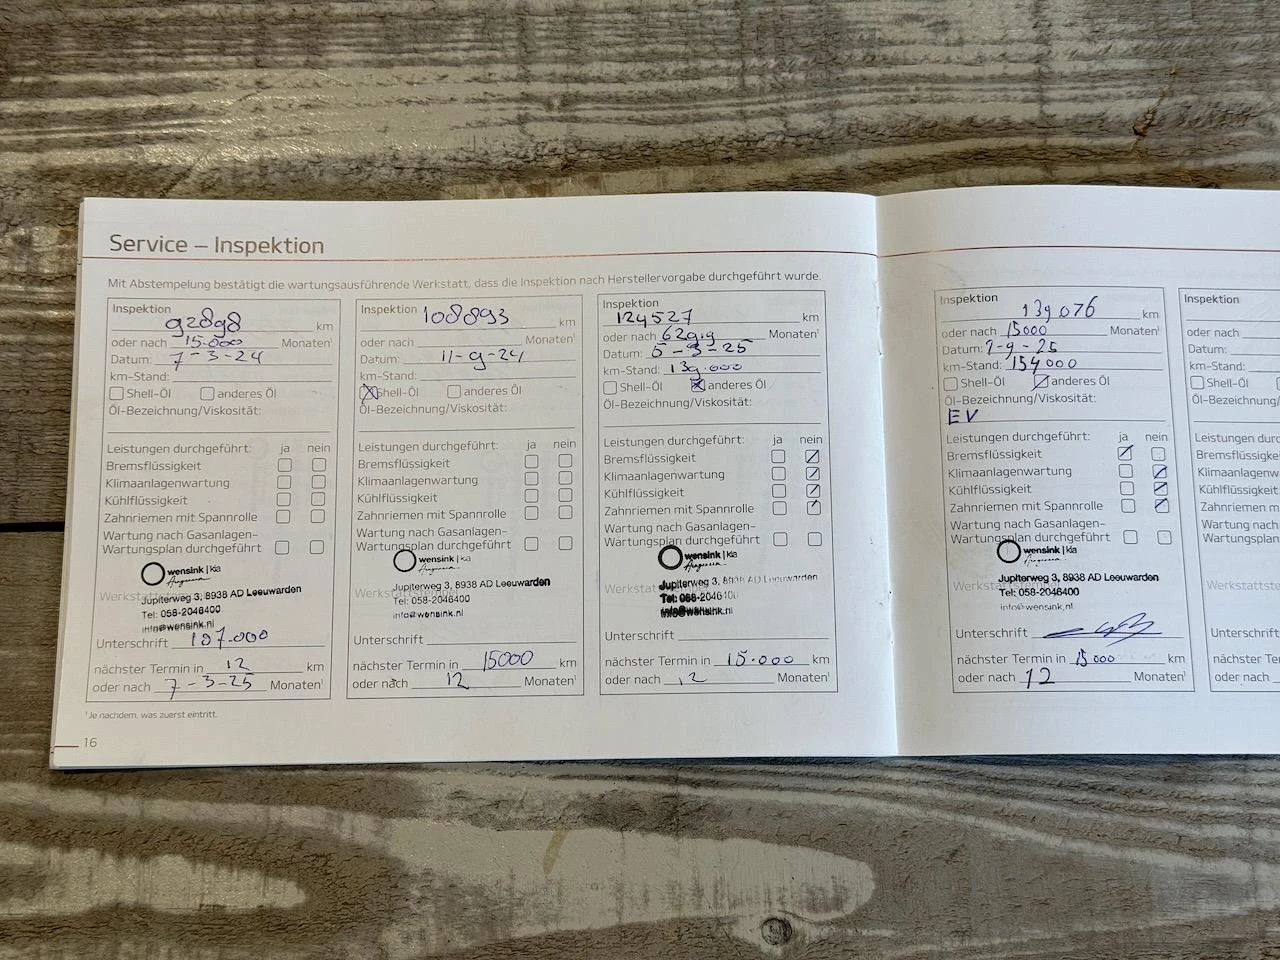 Service – Inspektion
Mit Abstempelung bestätigt die wartungsausführende Werkstatt, dass die Inspektion nach Herstellervorgabe durchgeführt wurde.
Inspektion
92898 km
oder nach 15.000 Monaten¹
Datum: 7-3-24
km-Stand:
Shell-Öl anderes Öl
Öl-Bezeichnung/Viskosität:
Leistungen durchgeführt: ja nein
Bremsflüssigkeit
Klimaanlagenwartung
Kühlflüssigkeit
Zahnriemen mit Spannrolle
Wartung nach Gasanlagen-
Wartungsplan durchgeführt
wensink | kia
Jupiterweg 3, 8938 AD Leeuwarden
Tel: 058-2046400
info@wensink.nl
Unterschrift 107.000
nächster Termin in 12 km
oder nach 7-3-25 Monaten¹
Inspektion
108893 km
oder nach Monaten¹
Datum: 11-9-24
km-Stand:
Shell-Öl anderes Öl
Öl-Bezeichnung/Viskosität:
Leistungen durchgeführt: ja nein
Bremsflüssigkeit
Klimaanlagenwartung
Kühlflüssigkeit
Zahnriemen mit Spannrolle
Wartung nach Gasanlagen-
Wartungsplan durchgeführt
wensink | kia
Jupiterweg 3, 8938 AD Leeuwarden
Tel: 058-2046400
info@wensink.nl
Unterschrift
nächster Termin in 15000 km
oder nach 12 Monaten¹
Inspektion
124527 km
oder nach Monaten¹
Datum: 5-3-25
km-Stand: 139.000
Shell-Öl anderes Öl
Öl-Bezeichnung/Viskosität:
Leistungen durchgeführt: ja nein
Bremsflüssigkeit
Klimaanlagenwartung
Kühlflüssigkeit
Zahnriemen mit Spannrolle
Wartung nach Gasanlagen-
Wartungsplan durchgeführt
wensink | kia
Jupiterweg 3, 8938 AD Leeuwarden
Tel: 058-2046400
info@wensink.nl
Unterschrift
nächster Termin in 15.000 km
oder nach 12 Monaten¹
¹Je nachdem, was zuerst eintritt.
16
Inspektion
139076 km
oder nach 15000 Monaten¹
Datum: -9-25
km-Stand: 154000
Shell-Öl anderes Öl
Öl-Bezeichnung/Viskosität:
EV
Leistungen durchgeführt: ja nein
Bremsflüssigkeit
Klimaanlagenwartung
Kühlflüssigkeit
Zahnriemen mit Spannrolle
Wartung nach Gasanlagen-
Wartungsplan durchgeführt
wensink | kia
Jupiterweg 3, 8938 AD Leeuwarden
Tel: 058-2046400
info@wensink.nl
Unterschrift
nächster Termin in 15000 km
oder nach 12 Monaten¹
Inspektion
oder nach
Datum:
km-Stand:
Shell-Öl
Öl-Bezeichnung
Leistungen
Wartung nach
Wartungsplan
nächster Termin
oder nach